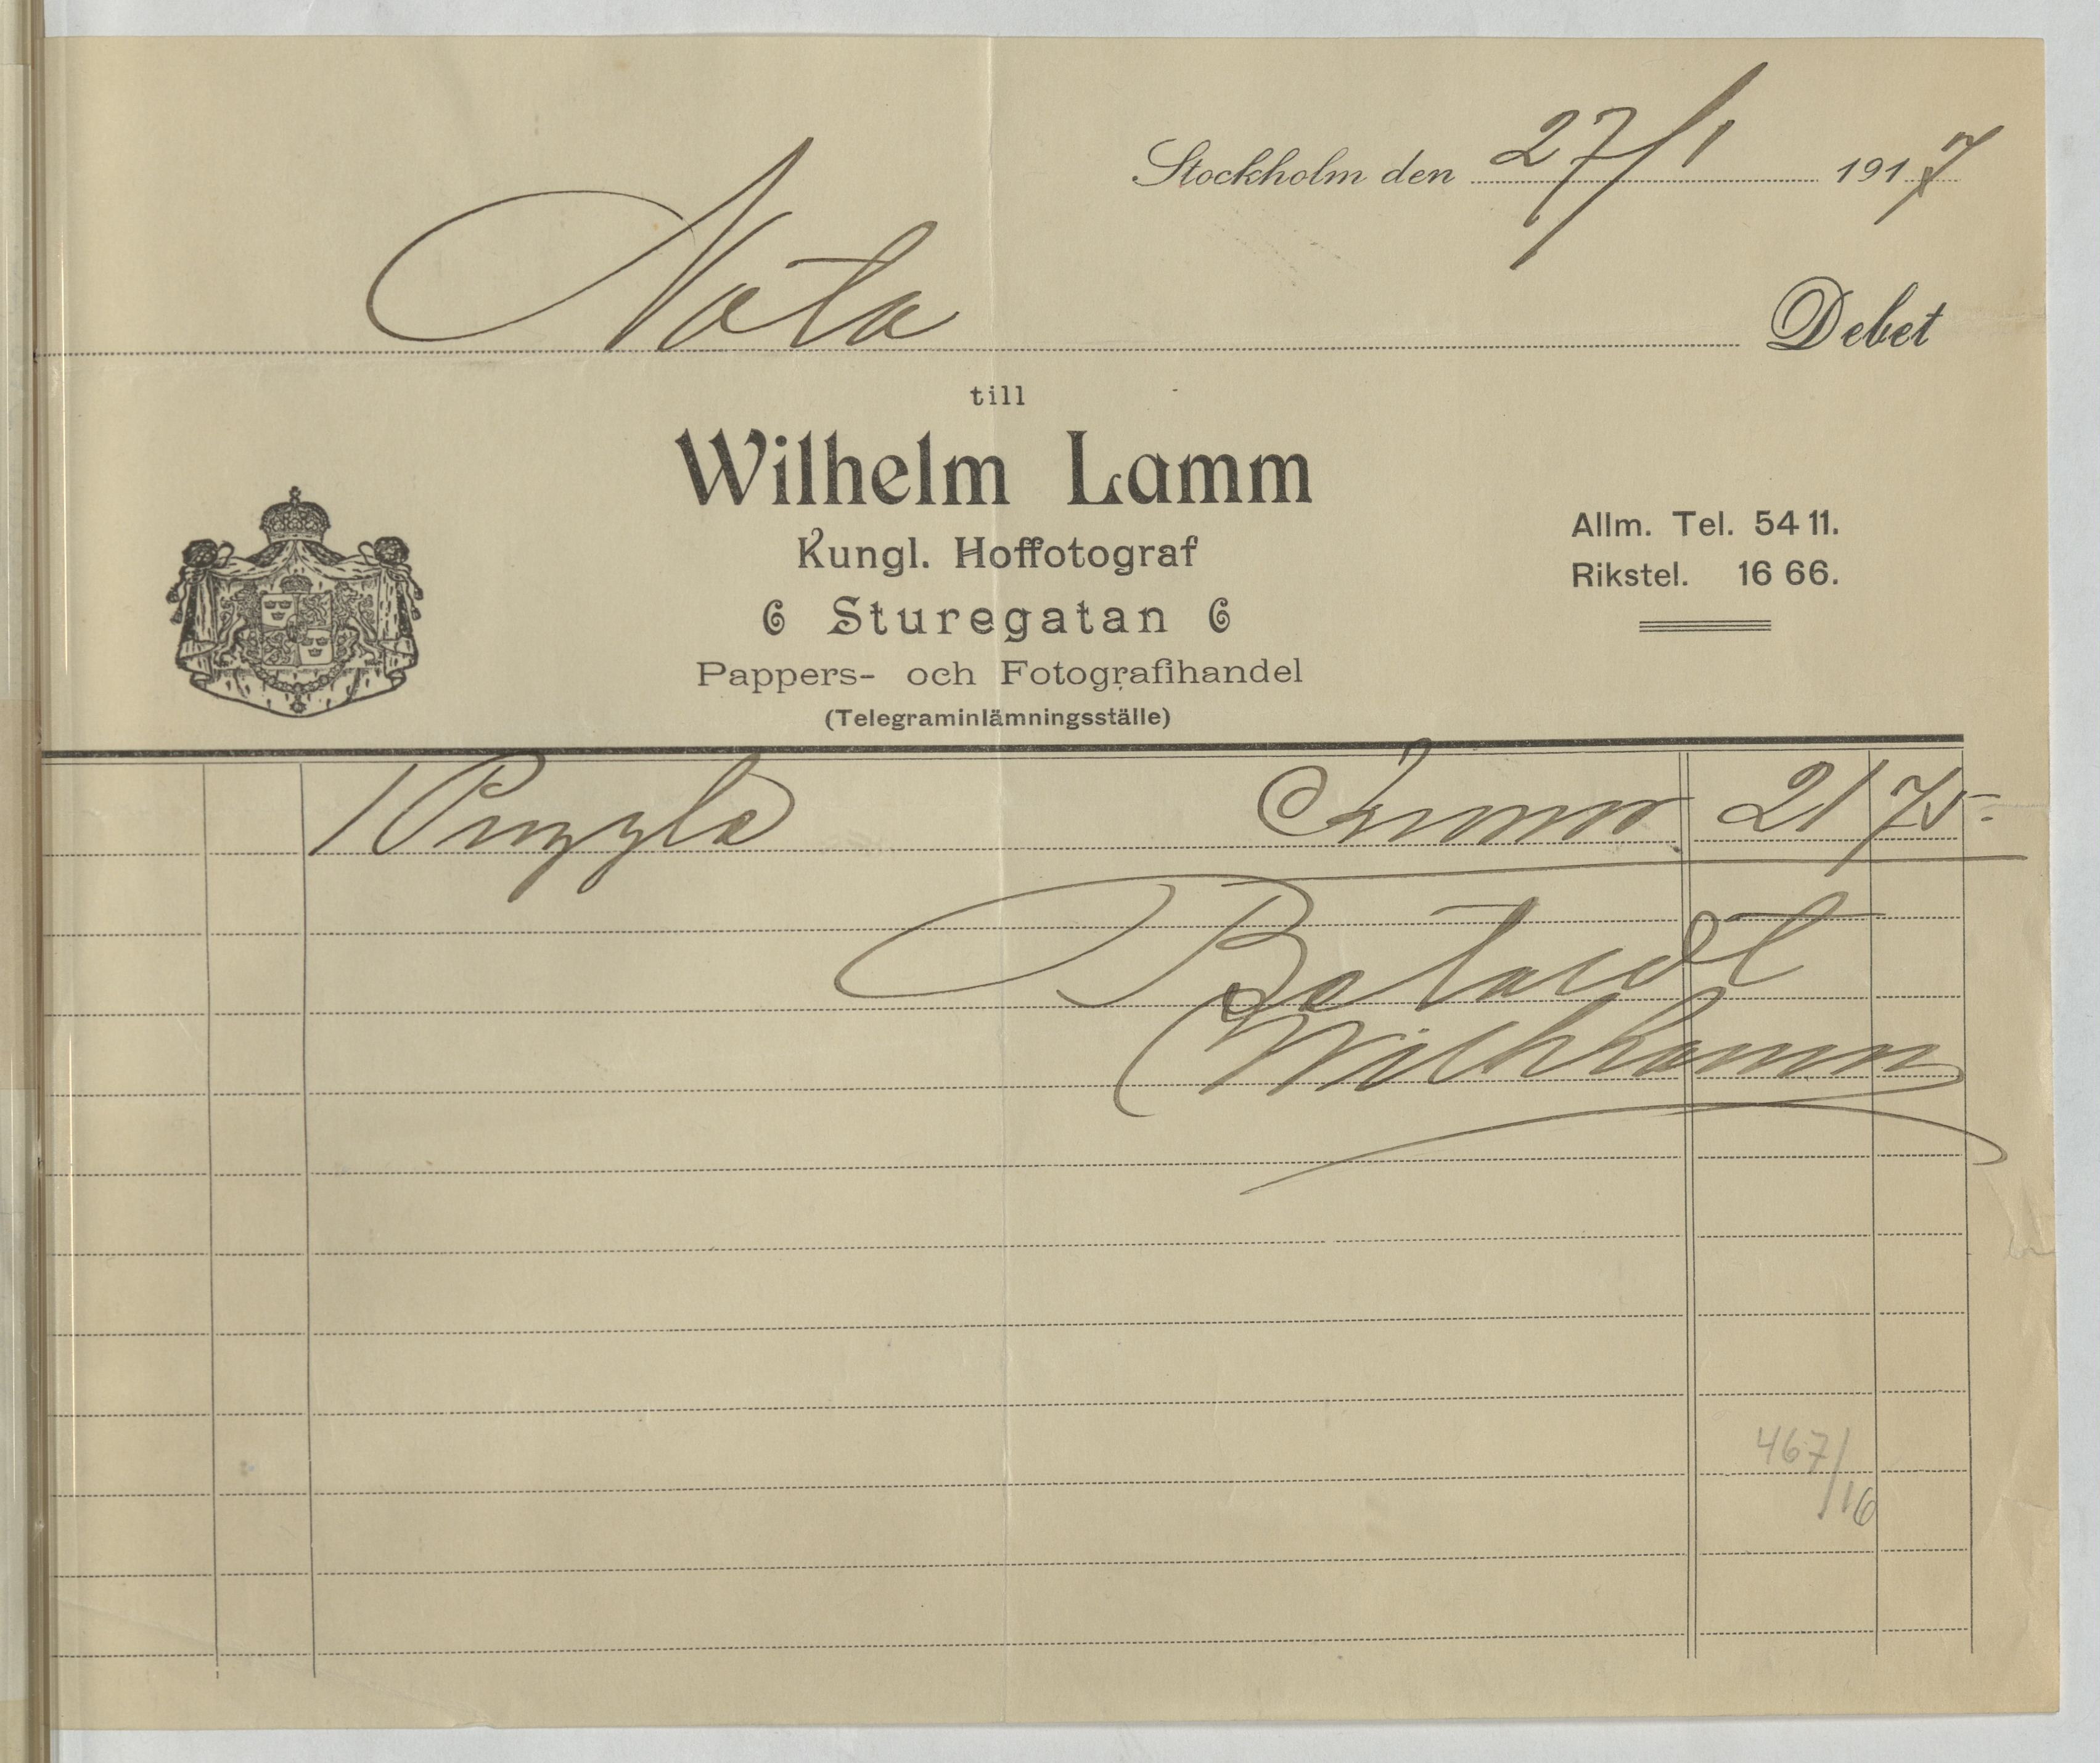 Stockholm den 27/1 1917
Nota Debet
till
Wilhelm Lamm
Kungl. Hoffotograf
6 Sturegatan 6
Pappers- och Fotografihandel
(Telegraminlämningsställe)
Allm. Tel. 54 11.
Rikstel. 16 66.
1 Puzzle Kronor 2/75
Betaldt
Wilh Lamm
467/16